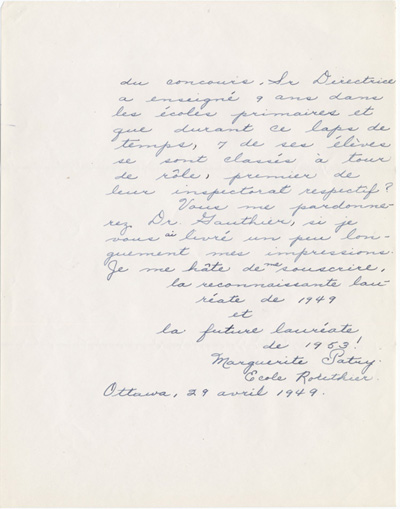 du concours. Sr Directrice
a enseigné 9 ans dans
les écoles primaires et
que durant ce laps de
temps, 7 de ses élèves
se sont classés à tour
de rôle, premier de
leur inspectorat respectif?
Vous me pardonne-
rez Dr Gauthier, si je
vous ai livré un peu lon-
guement mes impressions.
Je me hâte de me souscrire,
la reconnaissante lau-
réate de 1949
et
la future lauréate
de 1953!
Marguerite Patry.
Ecole Routhier.
Ottawa, 29 avril 1949.